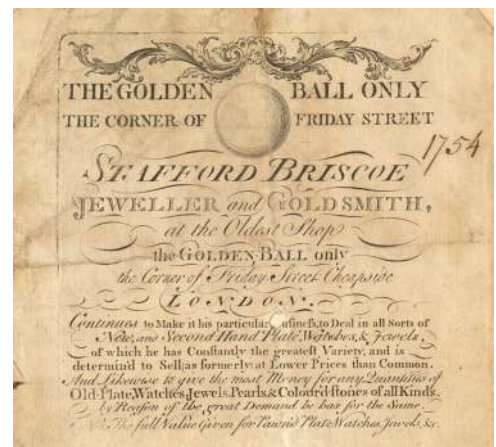 THE GOLDEN BALL ONLY
THE CORNER OF FRIDAY STREET
1754
STAFFORD BRISCOE
JEWELLER and GOLDSMITH,
at the Oldest Shop
the GOLDEN-BALL only
the Corner of Friday Street Cheapside
LONDON.
Continues to Make it his particular Busineſs, to Deal in all Sorts of
New, and Second Hand Plate, Watches, & Jewels
of which he has Conſtantly the greateſt Variety, and is
determin'd to Sell, as formerly at Lower Prices than Common.
And Likewise to give the most Money for any Quantities of
Old-Plate, Watches Jewels, Pearls, & Colour'd ſtones of all Kinds,
by Reason of the great Demand he has for the Same.
The full Value Given for Pawn'd Plate Watches, Jewels, &c.